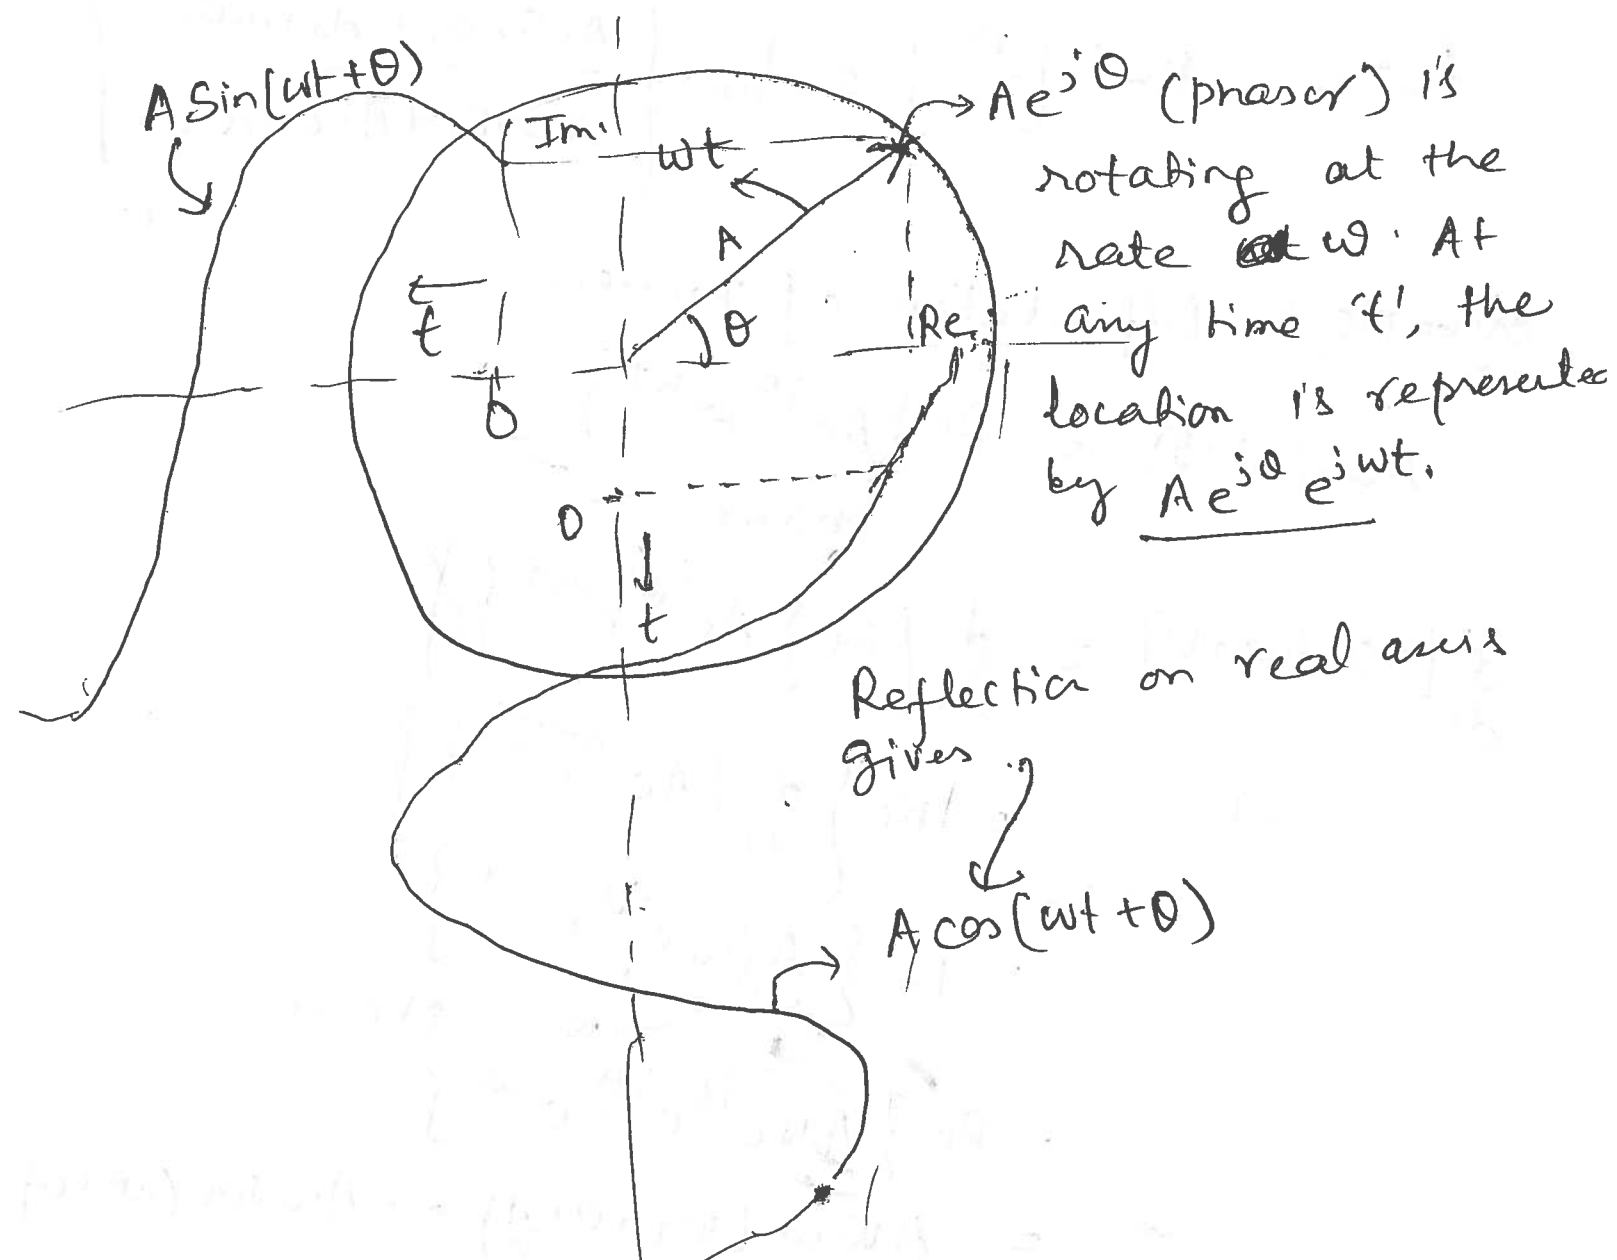 A Sin(ωt + θ)
Im.
ωt
A
θ
t
Re
0
0
t
Ae^{jθ} (phasor) is
rotating at the
rate ω. At
any time 't', the
location is represented
by Ae^{jθ} e^{jωt}.
Reflection on real axis
gives
A cos(ωt + θ)